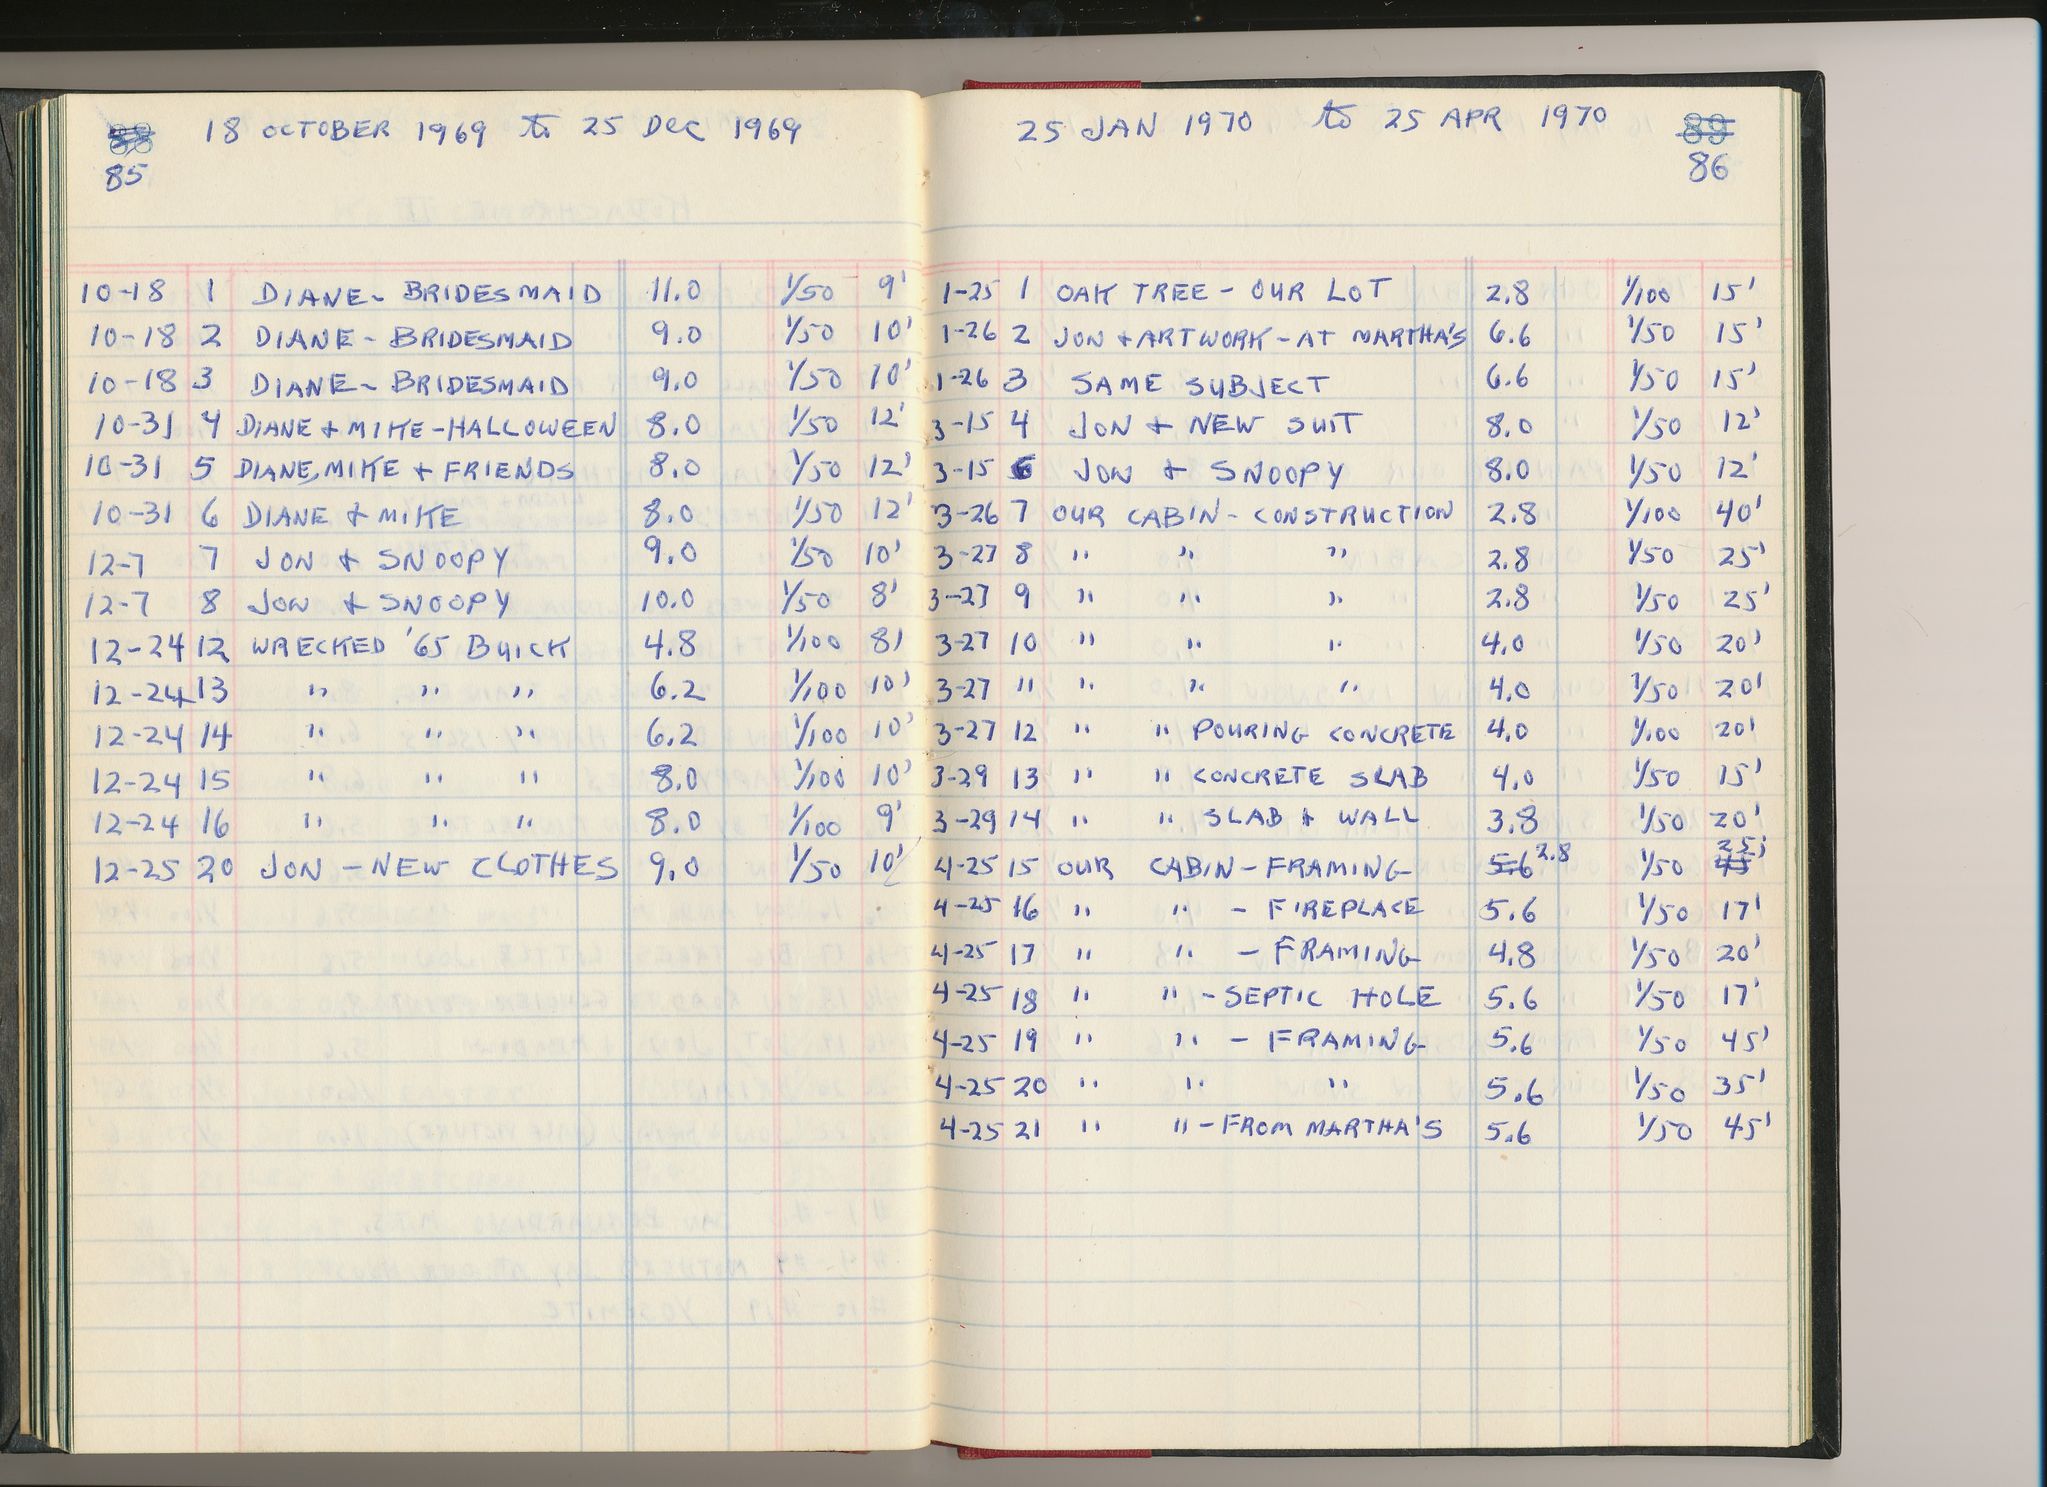 88 18 OCTOBER 1969 to 25 DEC 1969
85
10-18 1 DIANE - BRIDESMAID 11.0 1/50 9'
10-18 2 DIANE - BRIDESMAID 9.0 1/50 10'
10-18 3 DIANE - BRIDESMAID 9.0 1/50 10'
10-31 4 DIANE & MIKE - HALLOWEEN 8.0 1/50 12'
10-31 5 DIANE, MIKE & FRIENDS 8.0 1/50 12'
10-31 6 DIANE & MIKE 8.0 1/50 12'
12-7 7 JON & SNOOPY 9.0 1/50 10'
12-7 8 JON & SNOOPY 10.0 1/50 8'
12-24 12 WRECKED '65 BUICK 4.8 1/100 8'
12-24 13 " " " 6.2 1/100 10'
12-24 14 " " " 6.2 1/100 10'
12-24 15 " " " 8.0 1/100 10'
12-24 16 " " " 8.0 1/100 9'
12-25 20 JON - NEW CLOTHES 9.0 1/50 10'
25 JAN 1970 to 25 APR 1970 89
86
1-25 1 OAK TREE - OUR LOT 2.8 1/100 15'
1-26 2 JON & ARTWORK - AT MARTHA'S 6.6 1/50 15'
1-26 3 SAME SUBJECT 6.6 1/50 15'
3-15 4 JON & NEW SUIT 8.0 1/50 12'
3-15 6 JON & SNOOPY 8.0 1/50 12'
3-26 7 OUR CABIN - CONSTRUCTION 2.8 1/100 40'
3-27 8 " " " 2.8 1/50 25'
3-27 9 " " " 2.8 1/50 25'
3-27 10 " " " 4.0 1/50 20'
3-27 11 " " " 4.0 1/50 20'
3-27 12 " " POURING CONCRETE 4.0 1/100 20'
3-29 13 " " CONCRETE SLAB 4.0 1/50 15'
3-29 14 " " SLAB & WALL 3.8 1/50 20'
4-25 15 OUR CABIN - FRAMING 5.6 2.8 1/50 45 25'
4-25 16 " " - FIREPLACE 5.6 1/50 17'
4-25 17 " " - FRAMING 4.8 1/50 20'
4-25 18 " " - SEPTIC HOLE 5.6 1/50 17'
4-25 19 " " - FRAMING 5.6 1/50 45'
4-25 20 " " " 5.6 1/50 35'
4-25 21 " " - FROM MARTHA'S 5.6 1/50 45'